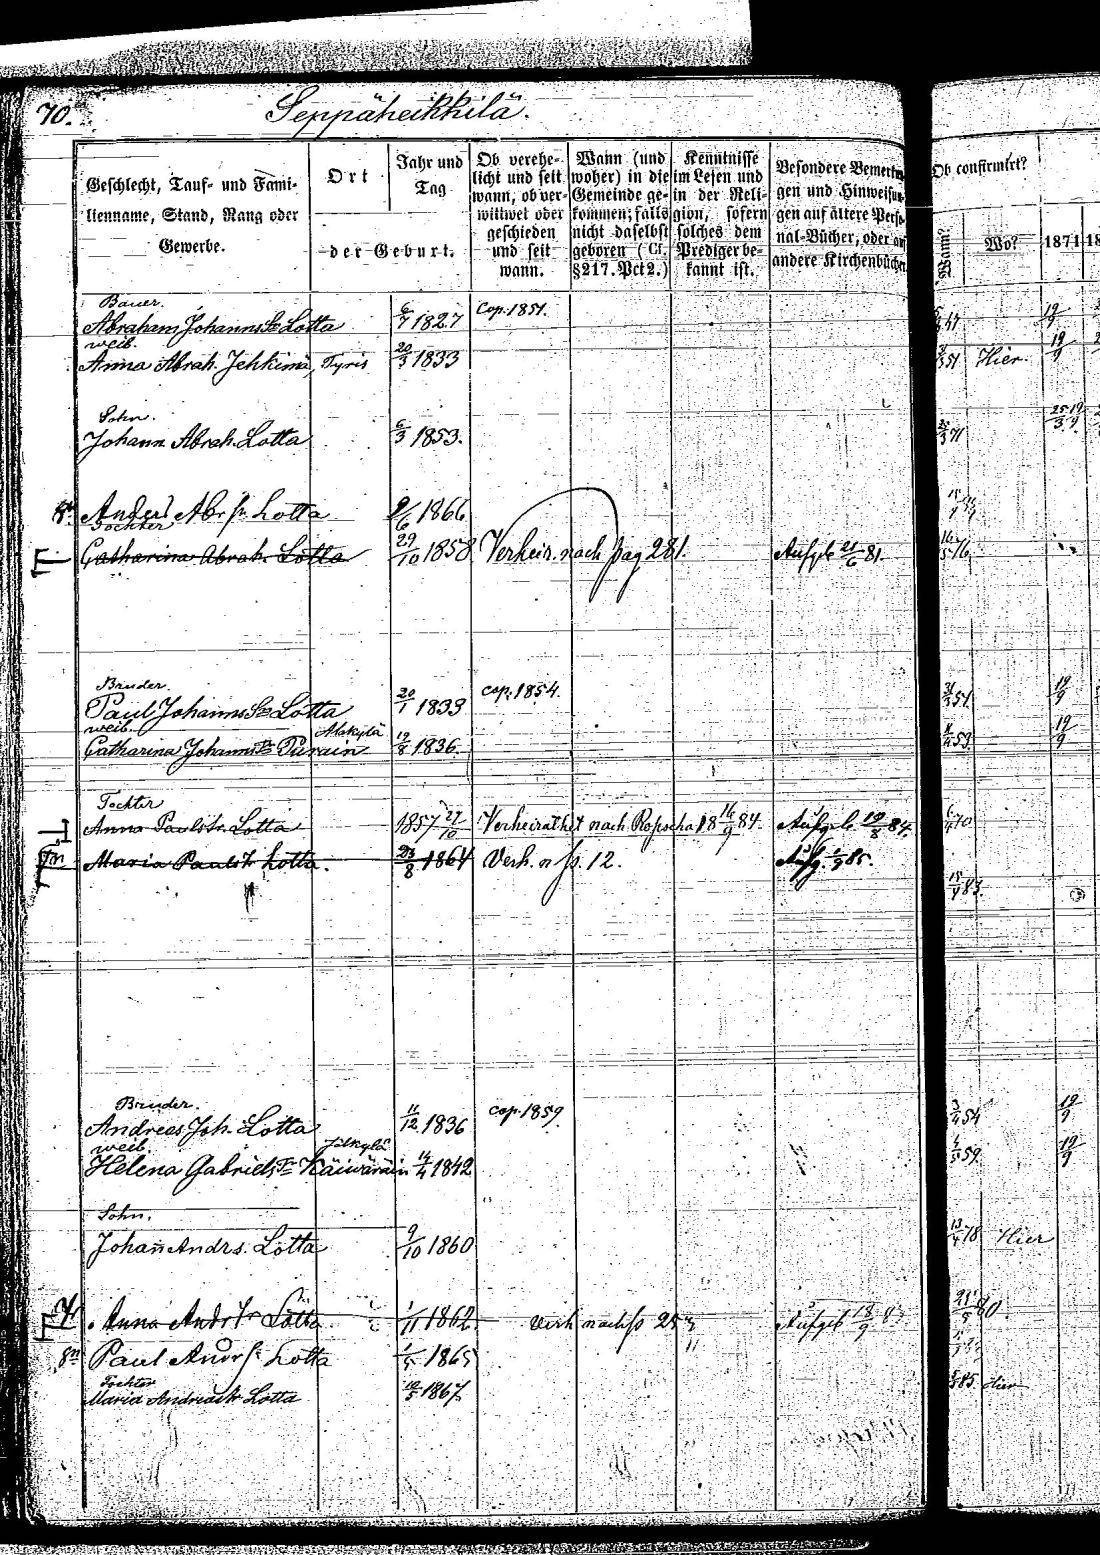 70.
Seppäheikkilä.
Geschlecht, Tauf- und Fami-
lienname, Stand, Rang oder
Gewerbe.
Ort
der Geburt.
Jahr und
Tag
Ob verehe-
licht und seit
wann, ob ver-
wittwet oder
geschieden
und seit
wann.
Wann (und
woher) in die
Gemeinde ge-
kommen; falls
nicht daselbst
geboren (Cf.
§217. Pct 2.)
Kenntnisse
im Lesen und
in der Reli-
gion, sofern
solches dem
Prediger be-
kannt ist.
Besondere Bemerku
gen und Hinweisun
gen auf ältere Perso-
nal-Bücher, oder au
andere Kirchenbüche
Ob confirmirt?
Wann?
Wo?
1871
18
Bauer.
Abraham Johanns Sn Lotta 6/7 1827 Cop. 1851.
weib.
Anna Abrah. Jehkimä, Tyris 20/3 1833 51 Hier. 19/9
Sohn.
Johann Abrah. Lotta 6/3 1853. 71 25/3 19/9
Sn Anders Abr Sn Lotta 9/6 1866
Tochter
Catharina Abrah. Lotta 29/10 1858 Verheir. nach pag 281. Aufgeb 21/6 81. 76
Bruder.
Paul Johanns Sn Lotta 20/1 1833 cop. 1854. 51 19/9
weib. Alakylä
Catharina Johanns Tr Purain 19/8 1836. 53 19/9
Tochter
Anna Paulstr. Lotta 1857 27/10 Verheirathet nach Ropscha 18 16/9 84. Aufgeb 19/8 84. 70
Maria Paulstr Lotta. 23/8 1864 Verh. n p. 12. Aufg. 1/9 85. 83.
Bruder.
Andreas Joh. Lotta 11/12 1836 cop. 1859 54 19/9
weib. Jälkylä
Helena Gabriels Tr Käiwäräin 14/4 1842 59 19/9
Sohn.
Johan Andrs. Lotta 9/10 1860 78 Hier
Tr Anna Andrs Tr Lotta 1/11 1862 Verh nach p 253 Aufgeb 18/9 80.
Sn Paul Andr Sn Lotta 1865
Tochter
Maria Andreastr Lotta 1867. 85 Hier